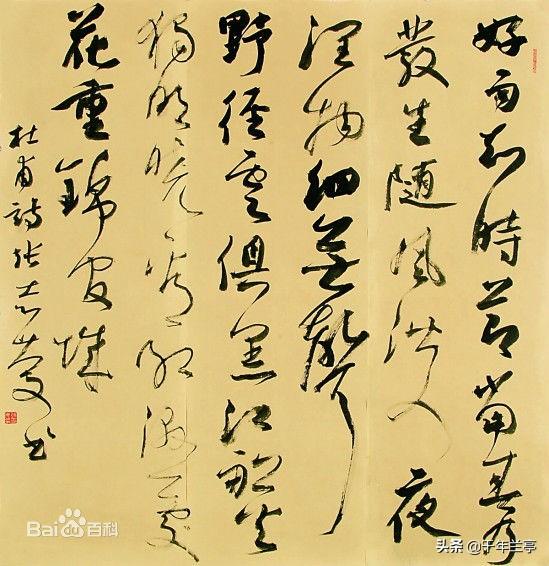 好雨知時節當春乃
發生随風潛入夜
潤物細無聲
野徑雲俱黑江船火
獨明曉看紅濕處
花重錦官城
杜甫詩張志慶书
Bai百科
头条 @千年兰亭